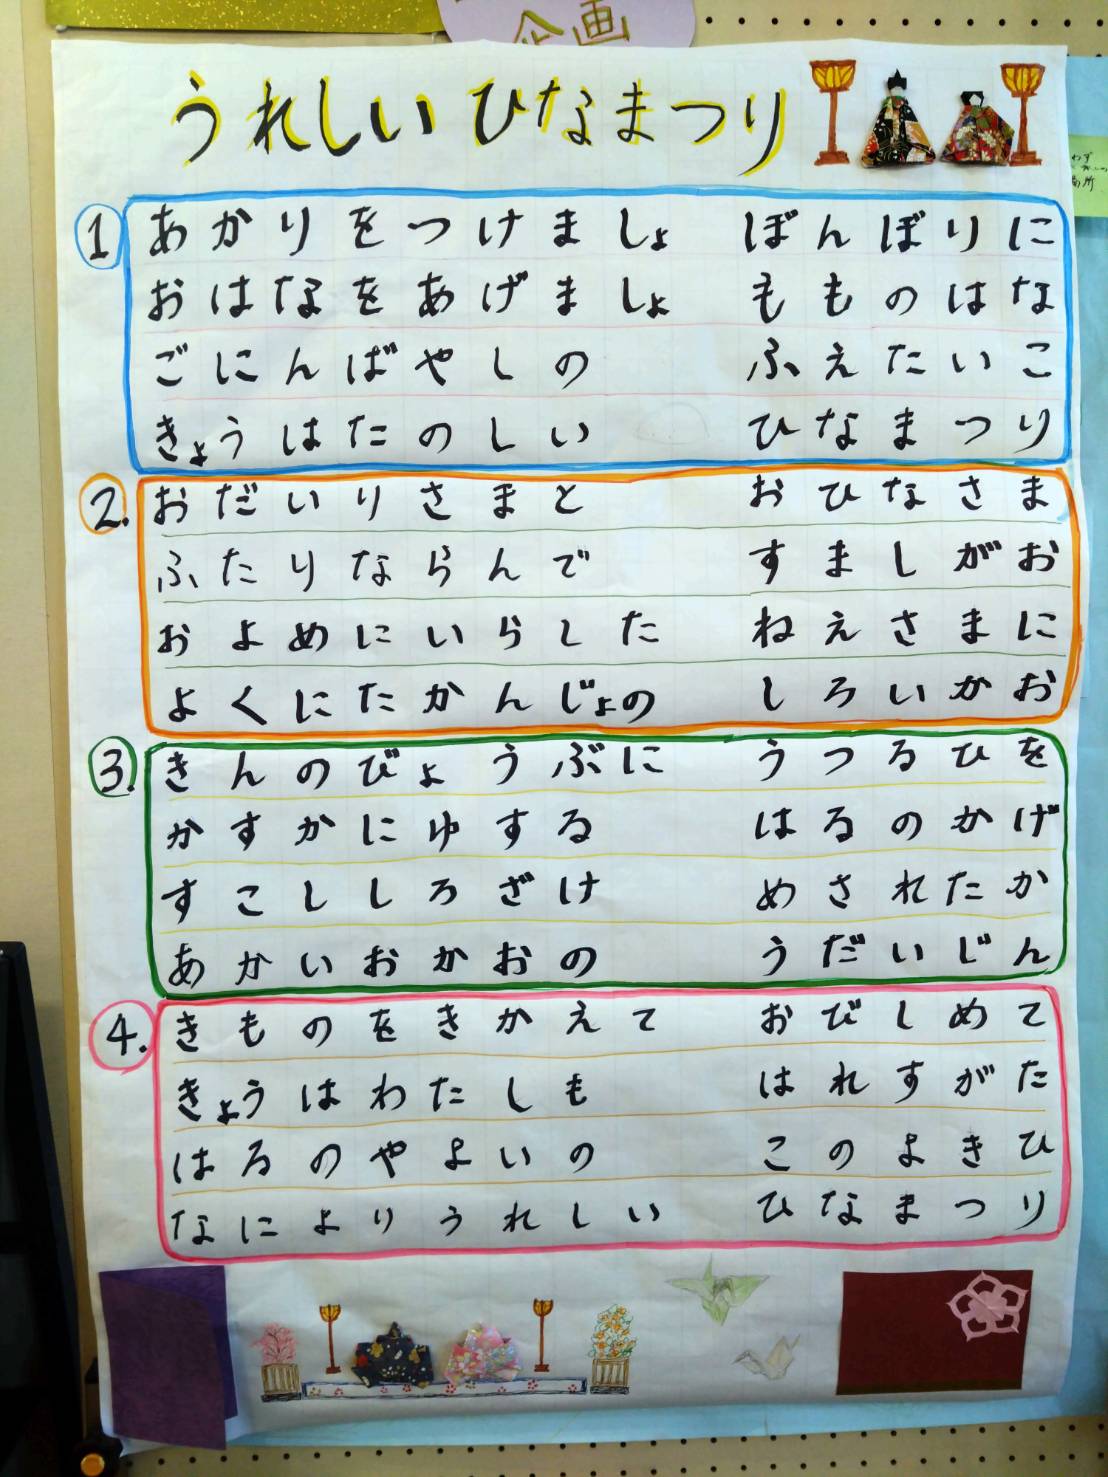 企画
うれしいひなまつり
1 あかりをつけましょ ぼんぼりに
おはなをあげましょ もものはな
ごにんばやしの ふえたいこ
きょうはたのしい ひなまつり
2. おだいりさまと おひなさま
ふたりならんで すましがお
およめにいらした ねえさまに
よくにたかんじょの しろいかお
3. きんのびょうぶに うつるひを
かすかにゆする はるのかげ
すこししろざけ めされたか
あかいおかおの うだいじん
4. きものをきかえて おびしめて
きょうはわたしも はれすがた
はるのやよいの このよきひ
なによりうれしい ひなまつり